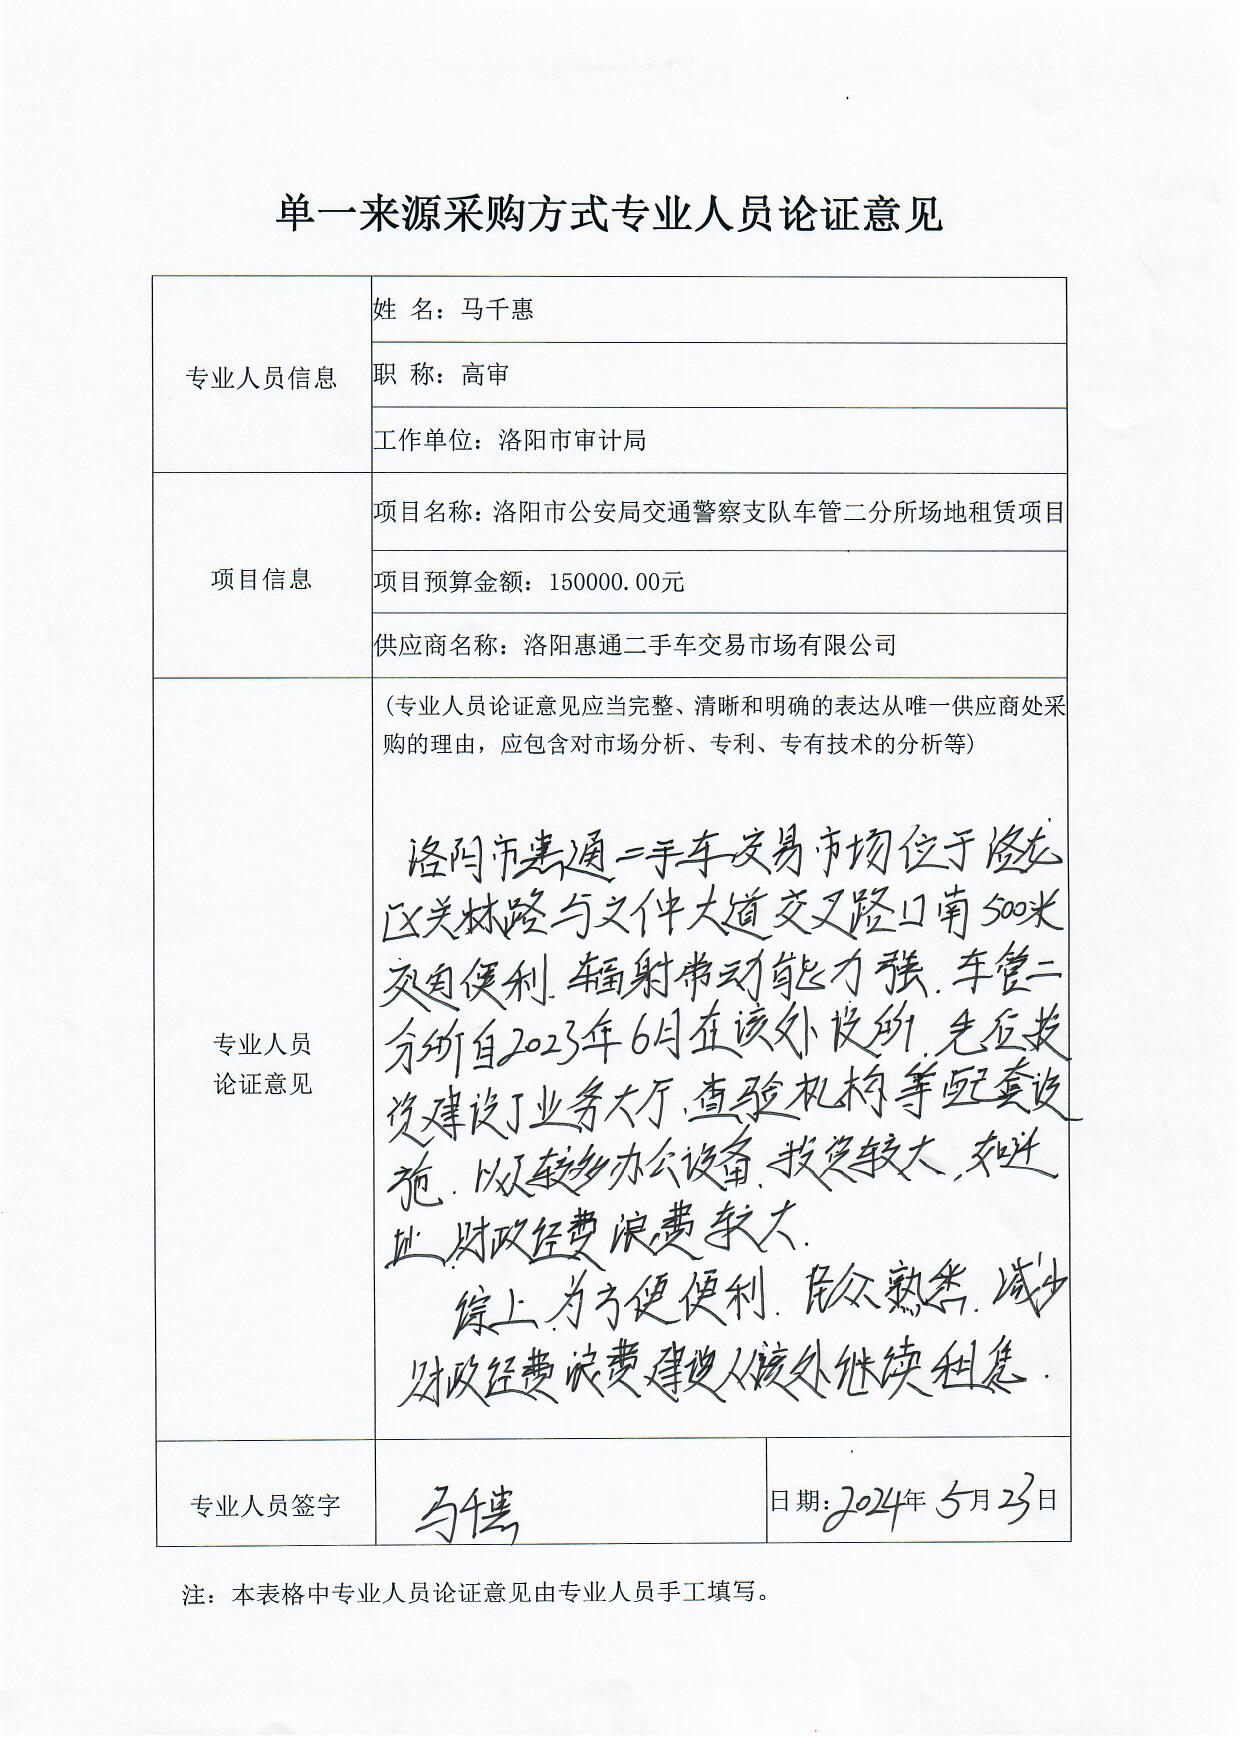 单一来源采购方式专业人员论证意见
专业人员信息
姓 名：马千惠
职 称：高审
工作单位：洛阳市审计局
项目信息
项目名称：洛阳市公安局交通警察支队车管二分所场地租赁项目
项目预算金额：150000.00元
供应商名称：洛阳惠通二手车交易市场有限公司
专业人员
论证意见
(专业人员论证意见应当完整、清晰和明确的表达从唯一供应商处采
购的理由，应包含对市场分析、专利、专有技术的分析等)
洛阳市惠通二手车交易市场位于洛龙
区关林路与文仲大道交叉路口南500米
交通便利.辐射带动能力强.车管二
分所自2023年6月在该处设所,先后投
资建设了业务大厅、查验机构等配套设
施.以及较多办公设备,投资较大,如迁
址,财政经费浪费较大.
综上,为方便便利.民众熟悉.减少
财政经费浪费建议从该处继续租赁.
专业人员签字
马千惠
日期：2024年5月23日
注：本表格中专业人员论证意见由专业人员手工填写。